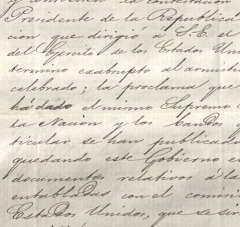 y conforme la contestacion
Presidente de la Republica
cion que dirigió á S. E. el
del Egercito de los Estados Uni
termino exabrupto al armisti
celebrado; la proclama que
ha dado el mismo Supremo
la Nacion y los bandos
ticular se han publicado
quedando este Gobierno en
documentos relativos á la
entabladas con el comisi
Estados Unidos, que se sir